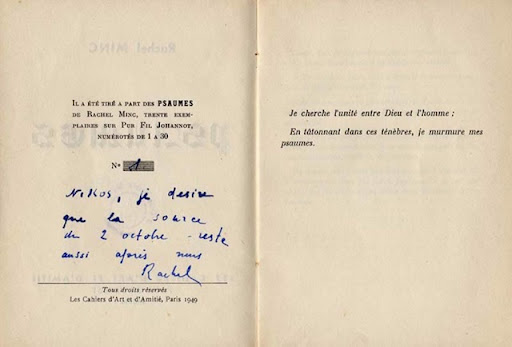 IL A ÉTÉ TIRÉ A PART DES PSAUMES
DE RACHEL MINC, TRENTE EXEM-
PLAIRES SUR PUR FIL JOHANNOT,
NUMÉROTÉS DE 1 A 30
N° 1
Nikos, je desire
que la source
du 2 octobre - reste
aussi après nous
Rachel
Tous droits réservés
Les Cahiers d'Art et d'Amitié, Paris 1949
Je cherche l'unité entre Dieu et l'homme ;
En tâtonnant dans ces ténèbres, je murmure mes
psaumes.